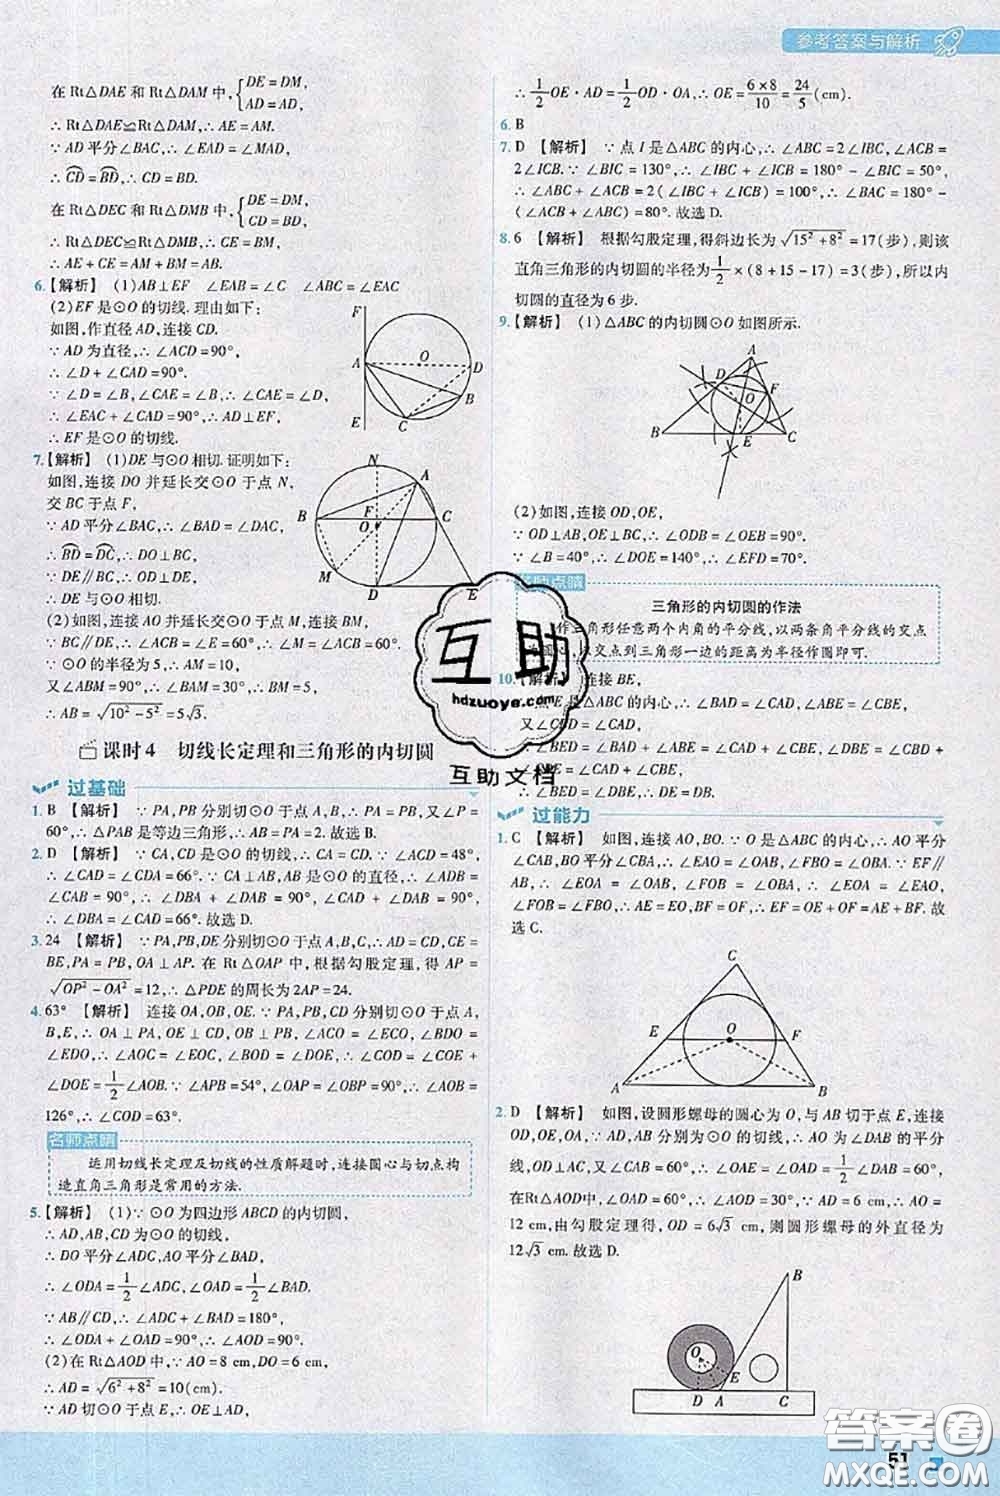 参考答案与解析
在 Rt△DAE 和 Rt△DAM 中,{DE=DM,
AD=AD,
∴ Rt△DAE≌Rt△DAM,∴ AE=AM.
∵ AD 平分∠BAC,∴ ∠EAD=∠MAD,
∴ CD=BD,∴ CD=BD.
在 Rt△DEC 和 Rt△DMB 中,{DE=DM,
CD=BD,
∴ Rt△DEC≌Rt△DMB,∴ CE=BM,
∴ AE+CE=AM+BM,∴ AM+BM=AC.
6.【解析】 (1)AB⊥EF ∠EAB=∠C ∠ABC=∠EAC
(2)EF 是⊙O 的切线. 理由如下:
如图,作直径 AD,连接 CD.
∵ AD 为直径,∴ ∠ACD=90°,
∴ ∠D+∠CAD=90°.
∵ ∠D=∠B,∠CAE=∠B,∴ ∠CAE=∠D,
∴ ∠EAC+∠CAD=90°,∴ AD⊥EF,
∴ EF 是⊙O 的切线.
F
A
O
D
B
E
C
7.【解析】 (1)DE 与⊙O 相切. 证明如下:
如图,连接 DO 并延长交⊙O 于点 N,
交 BC 于点 F,
∵ AD 平分∠BAC,∴ ∠BAD=∠DAC,
∴ BD=DC,∴ DO⊥BC.
∵ DE∥BC,∴ DE⊥DO,
∴ DE 与⊙O 相切.
(2)如图,连接 AO 并延长交⊙O 于点 M,连接 BM,
∵ BC∥DE,∴ ∠ACB=∠E=60°,∴ ∠M=60°.
∵ ⊙O 的半径为 5,∴ AM=10.
又∵ ∠ABM=90°,∴ ∠BAM=30°,∴ BM=5,
∴ AB=√10²−5²=5√3.
N
A
B
F
C
O
M
D
E
课时 4 切线长定理和三角形的内切圆
过基础
1. B 【解析】 ∵ PA,PB 分别切⊙O 于点 A,B,∴ PA=PB,又∠P=
60°,∴ △PAB 是等边三角形,∴ AB=PA=2. 故选 B.
2. D 【解析】 ∵ CA,CD 是⊙O 的切线,∴ CA=CD. ∵ ∠ACD=48°,
∴ ∠CAD=∠CDA=66°. ∵ CA⊥AB,AB 是⊙O 的直径,∴ ∠ADB=
∠CAB=90°,∴ ∠DBA+∠DAB=∠CAD+∠DAB=90°,
∴ ∠DBA=∠CAD=66°. 故选 D.
3. 24 【解析】 ∵ PA,PB,DE 分别切⊙O 于点 A,B,C,∴ AD=CD,CE=
BE,PA=PB,OA⊥AP. 在 Rt△OAP 中,根据勾股定理,得 AP=
√OP²−OA²=12,∴ △PDE 的周长为 2AP=24.
4. 63° 【解析】 连接 OA,OB,OE. ∵ PA,PB,CD 分别切⊙O 于点 A,
B,E,∴ OA⊥PA,OE⊥CD,OB⊥PB,∠ACO=∠ECO,∠BDO=
∠EDO,∴ ∠AOC=∠EOC,∠BOD=∠DOE,∴ ∠COD=∠COE+
∠DOE=1/2∠AOB. ∵ ∠APB=54°,∠OAP=∠OBP=90°,∴ ∠AOB=
126°,∴ ∠COD=63°.
名师点睛
运用切线长定理及切线的性质解题时,连接圆心与切点构
造直角三角形是常用的方法.
5.【解析】 (1)∵ ⊙O 为四边形 ABCD 的内切圆,
∴ AD,AB,CD 为⊙O 的切线,
∴ DO 平分∠ADC,AO 平分∠BAD,
∴ ∠ODA=1/2∠ADC,∠OAD=1/2∠BAD.
∵ AB∥CD,∴ ∠ADC+∠BAD=180°,
∴ ∠ODA+∠OAD=90°,∴ ∠AOD=90°.
(2)在 Rt△AOD 中,∵ AO=8 cm,DO=6 cm,
∴ AD=√6²+8²=10(cm).
∵ AD 切⊙O 于点 E,∴ OE⊥AD,
∴ 1/2OE·AD=1/2OD·OA,∴ OE=6×8/10=24/5(cm).
6. B
7. D 【解析】 ∵ 点 I 是△ABC 的内心,∴ ∠ABC=2∠IBC,∠ACB=
2∠ICB. ∵ ∠BIC=130°,∴ ∠IBC+∠ICB=180°−∠BIC=50°,
∴ ∠ABC+∠ACB=2(∠IBC+∠ICB)=100°,∴ ∠BAC=180°−
(∠ABC+∠ACB)=80°. 故选 D.
8. 6 【解析】 根据勾股定理,得斜边长为√15²+8²=17(步),则该
直角三角形的内切圆的半径为1/2×(8+15−17)=3(步),所以内
切圆的直径为 6 步.
9.【解析】 (1)△ABC 的内切圆⊙O 如图所示.
A
D
F
O
B
E
C
(2)如图,连接 OD,OE,
∵ OD⊥AB,OE⊥BC,∴ ∠ODB=∠OEB=90°.
∵ ∠B=40°,∴ ∠DOE=140°,∴ ∠EFD=70°.
师点睛
三角形的内切圆的作法
作三角形任意两个内角的平分线,以两条角平分线的交点
圆心,以交点到三角形一边的距离为半径作圆即可.
10.【解析】 连接 BE,
是△ABC 的内心,∴ ∠BAD=∠CAD,∠ABE=∠CBE,
又∵ ∠CBD=∠CAD,∴ ∠BAD=∠CBD,
∴ ∠BED=∠BAD+∠ABE,∠DBE=∠CBE+∠CBD,
∴ ∠DBE=∠BED,∴ BD=ED.
互助
hdzuoye.com
互助文档
过能力
1. C 【解析】 如图,连接 AO,BO. ∵ O 是△ABC 的内心,∴ AO 平分
∠CAB,BO 平分∠CBA,∴ ∠EAO=∠OAB,∠FBO=∠OBA. ∵ EF∥
AB,∴ ∠EOA=∠OAB,∠FOB=∠OBA,∴ ∠EAO=∠EOA,
∠FOB=∠FBO,∴ AE=EO,FO=BF,∴ EF=OE+OF=AE+BF. 故
选 C.
C
E
O
F
A
B
2. D 【解析】 如图,设圆形螺母的圆心为 O,与 AB 切于点 E,连接
OD,OE,OA,∵ AD,AB 分别为⊙O 的切线,∴ AO 为∠DAB 的平分
线,OD⊥AC. 又∵ ∠CAB=60°,∴ ∠OAE=∠OAD=1/2∠DAB=60°.
在Rt△AOD中,∠OAD=60°,AD=6 cm,∴ ∠AOD=30°,∴ AO=
12 cm,由勾股定理得,OD=6√3 cm,则圆形螺母的外直径为
12√3 cm. 故选 D.
B
O
E
D
A
C
51
答案圈
MXQE.COM